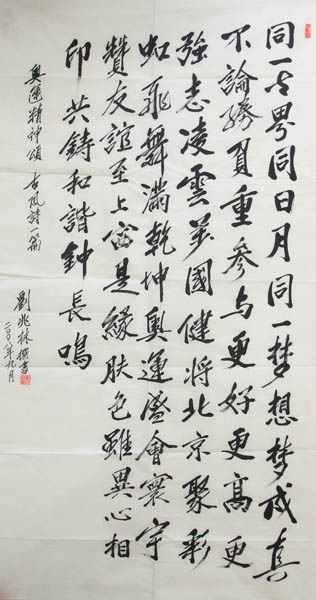 同一世界同日月同一梦想梦成真
不論勝負重參与更好更高更
強志凌雲萬國健將北京聚彩
虹飛舞滿乾坤奧運盛會寰宇
贊友誼至上皆是緣肤色雖異心相
印共鑄和諧鐘長鳴
奧運精神頌 古風詩一篇
劉兆林撰書
二〇〇八年九月